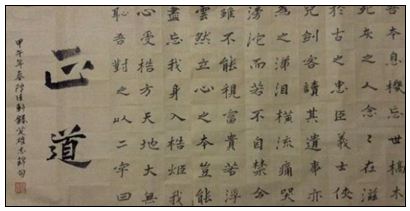 吾本息機忘世槁木
死灰之人念々在滋
于古之忠臣義士俠
兒劍客讀其遺事亦
為之涕泪橫流痛哭
滂沱而若不自禁今
雖不能視富貴若浮
雲然立心之本豈能
盡忘我身入梏姬我
心受梏方天地大無
恥吾對之以二字曰
正道
甲午年春 錄 雄志錦句